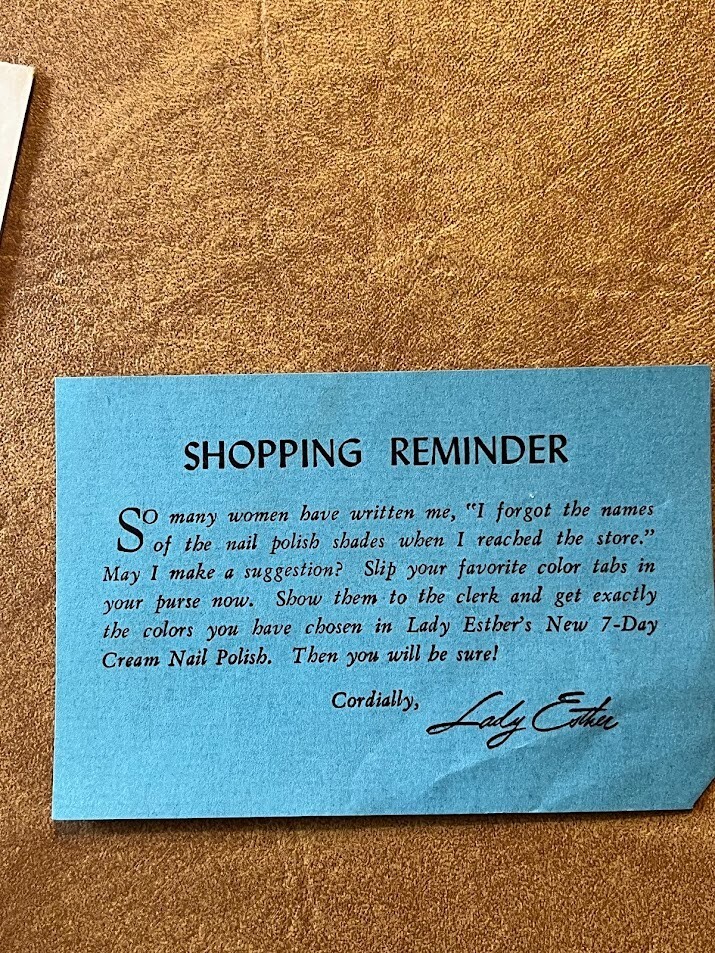 SHOPPING REMINDER
SO many women have written me, "I forgot the names
of the nail polish shades when I reached the store."
May I make a suggestion? Slip your favorite color tabs in
your purse now. Show them to the clerk and get exactly
the colors you have chosen in Lady Esther's New 7-Day
Cream Nail Polish. Then you will be sure!
Cordially, Lady Esther